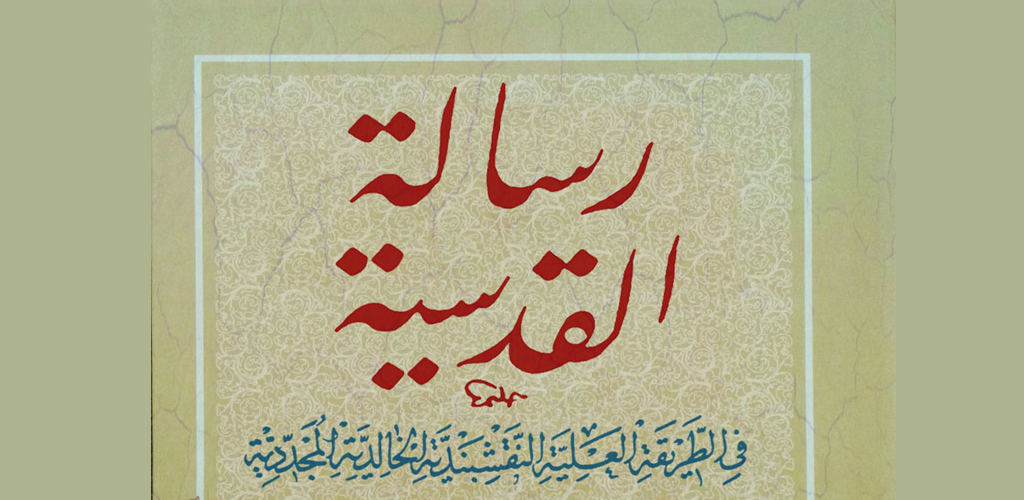 رسالة
القدسية
في الطَّرِيقَةِ الْعَلِيَّةِ النَّقْشِبَنْدِيَّةِ الْخَالِدِيَّةِ الْمُجَدِّدِيَّةِ